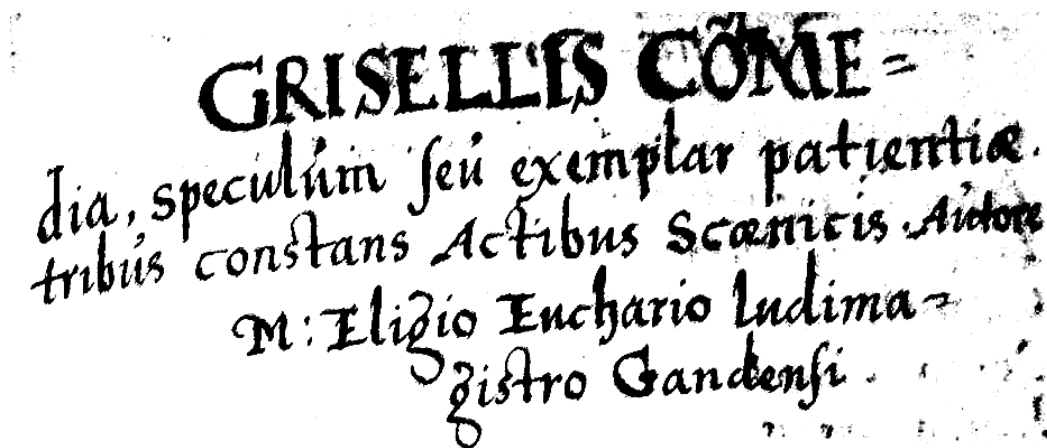 GRISELLIS COM̃E=
dia, speculum seu exemplar patientiæ.
tribus constans Actibus Scœnicis. Autore
M: Eligio Euchario ludima=
gistro Gandensi.